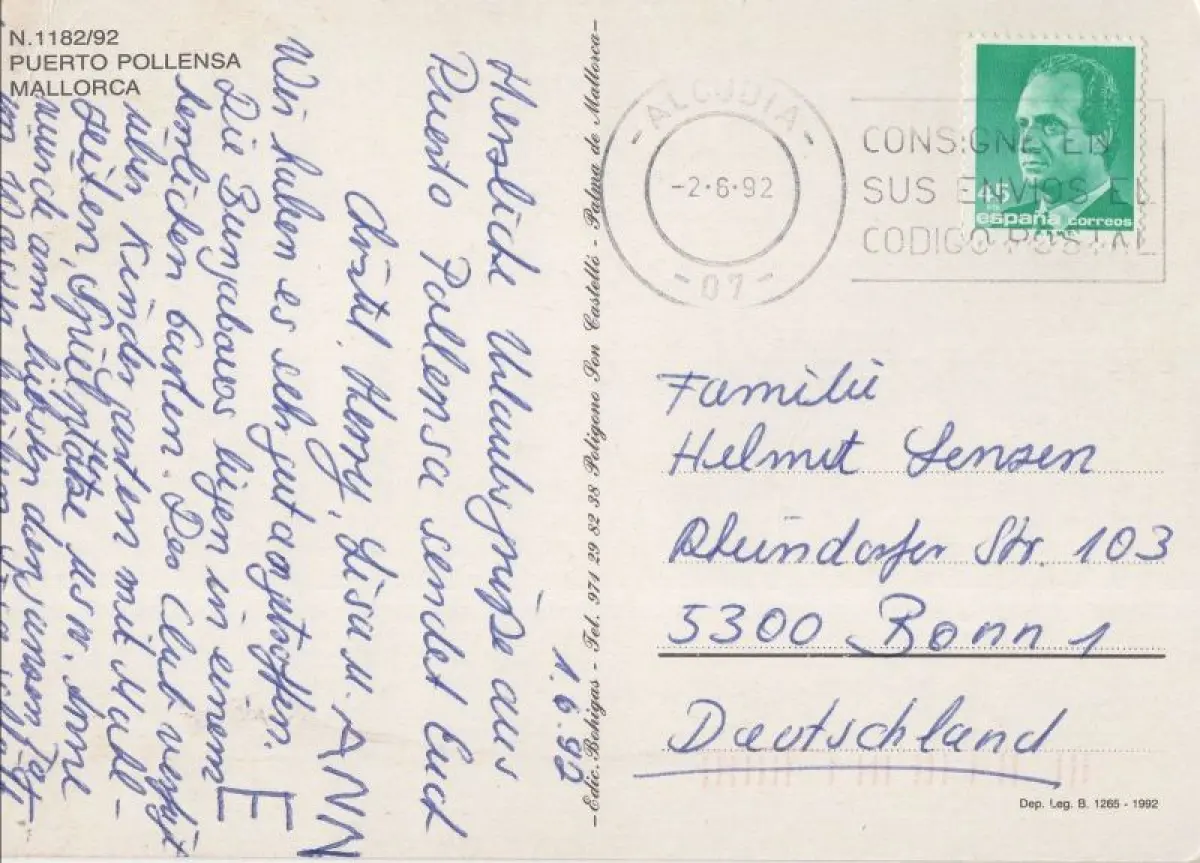 N.1182/92
PUERTO POLLENSA
MALLORCA
Herzliche Urlaubsgrüße aus
Puerto Pollensa sendet Euch
Christl, Horry, Lisa u. ANN
E
Wir haben es sehr gut angetroffen.
Die Bungalows liegen in einem
herrlichen Garten. Der Club verfügt
über Kindergarten mit Mahl-
zeiten, Spielplätze usw. Anne
würde am liebsten den ganzen Tag
im Wasser
1.6.92
-Edic. Bohigas - Tel. 971 29 82 38 Polígono Son Castelló - Palma de Mallorca-
- ALCUDIA -
-2-6-92
- 07 -
CONSIGNE EN
SUS ENVIOS EL
CODIGO POSTAL
45
españa correos
Familie
Helmut Lenzen
Rheindorfer Str. 103
5300 Bonn 1
Deutschland
Dep. Leg. B. 1265 - 1992